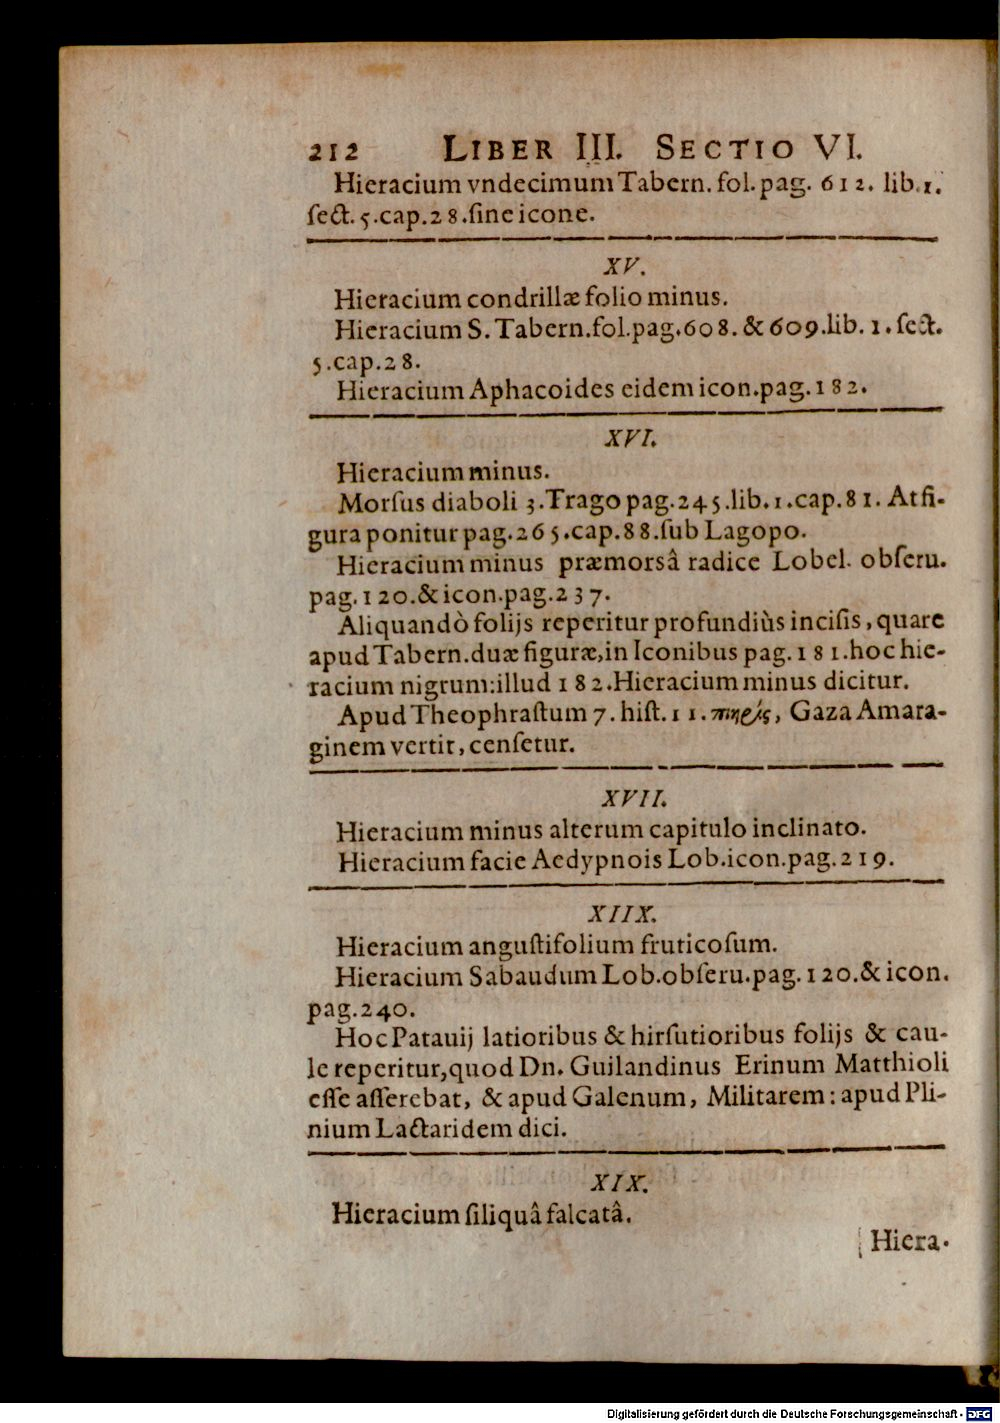 212 LIBER III. SECTIO VI.
Hieracium vndecimum Tabern. fol. pag. 612. lib. 1.
ſect. 5. cap. 28. ſine icone.
XV.
Hieracium condrillæ folio minus.
Hieracium S. Tabern. fol. pag. 608. & 609. lib. 1. ſect.
5. cap. 28.
Hieracium Aphacoides eidem icon. pag. 182.
XVI.
Hieracium minus.
Morſus diaboli 3. Trago pag. 245. lib. 1. cap. 81. At fi-
gura ponitur pag. 265. cap. 88. ſub Lagopo.
Hieracium minus præmorsâ radice Lobel. obſeru.
pag. 120. & icon. pag. 237.
Aliquandò folijs reperitur profundiùs inciſis, quare
apud Tabern. duæ figuræ, in Iconibus pag. 181. hoc hie-
racium nigrum: illud 182. Hieracium minus dicitur.
Apud Theophraſtum 7. hiſt. 11. πικρὶς, Gaza Amara-
ginem vertit, cenſetur.
XVII.
Hieracium minus alterum capitulo inclinato.
Hieracium facie Aedypnois Lob. icon. pag. 219.
XIIX.
Hieracium anguſtifolium fruticoſum.
Hieracium Sabaudum Lob. obſeru. pag. 120. & icon.
pag. 240.
Hoc Patauij latioribus & hirſutioribus folijs & cau-
le reperitur, quod Dn. Guilandinus Erinum Matthioli
eſſe aſſerebat, & apud Galenum, Militarem: apud Pli-
nium Lactaridem dici.
XIX.
Hieracium ſiliquâ falcatâ.
Hiera-
Digitalisierung gefördert durch die Deutsche Forschungsgemeinschaft - DFG